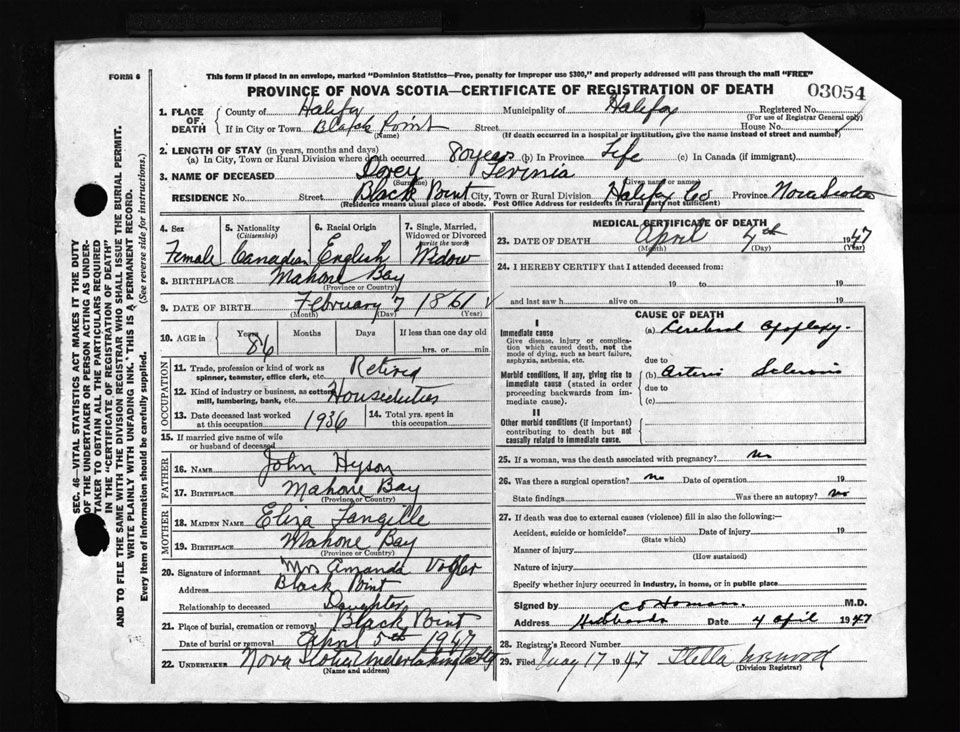 FORM 6
This form if placed in an envelope, marked "Dominion Statistics—Free, penalty for improper use $300," and properly addressed will pass through the mail "FREE"
PROVINCE OF NOVA SCOTIA—CERTIFICATE OF REGISTRATION OF DEATH
03054
1. PLACE OF DEATH County of Halifax Municipality of Halifax Registered No.
(For use of Registrar General only)
If in City or Town Black Point Street House No.
(Name) (If death occurred in a hospital or institution, give the name instead of street and number)
2. LENGTH OF STAY (in years, months and days)
(a) In City, Town or Rural Division where death occurred 80 years (b) in Province Life (c) In Canada (if immigrant)
3. NAME OF DECEASED Dorey Levinia
(Surname) (Given name or names)
RESIDENCE No. Street Black Point City, Town or Rural Division Halifax Co Province Nova Scotia
(Residence means usual place of abode. Post Office Address for residents in rural parts not sufficient)
4. Sex 5. Nationality 6. Racial Origin 7. Single, Married, Widowed or Divorced
(Citizenship) (write the word)
Female Canadian English Widow
8. BIRTHPLACE Mahone Bay
(Province or Country)
9. DATE OF BIRTH February 7 1861
(Month) (Day) (Year)
10. AGE in Years Months Days If less than one day old
86 hrs. or min.
OCCUPATION
11. Trade, profession or kind of work as spinner, teamster, office clerk, etc. Retired
12. Kind of industry or business, as cotton mill, lumbering, bank, etc. Houseduties
13. Date deceased last worked at this occupation 1936 14. Total yrs. spent in this occupation
15. If married give name of wife or husband of deceased
FATHER
16. NAME John Hyson
17. BIRTHPLACE Mahone Bay
(Province or Country)
MOTHER
18. MAIDEN NAME Eliza Langille
19. BIRTHPLACE Mahone Bay
(Province or Country)
20. Signature of informant Mrs Amanda Vogler
Address Black Point
Relationship to deceased Daughter
21. Place of burial, cremation or removal Black Point
Date of burial or removal April 5th 1947
22. UNDERTAKER Nova Scotia Undertaking
(Name and address)
MEDICAL CERTIFICATE OF DEATH
23. DATE OF DEATH April 4th 1947
(Month) (Day) (Year)
24. I HEREBY CERTIFY that I attended deceased from:
19 to 19
and last saw h alive on 19
CAUSE OF DEATH
I
Immediate cause (a) Cerebral apoplexy
Give disease, injury or complication which caused death, not the mode of dying, such as heart failure, asphyxia, asthenia, etc.
due to
Morbid conditions, if any, giving rise to immediate cause (stated in order proceeding backwards from immediate cause). (b) Arterio Sclerosis
due to
(c)
II
Other morbid conditions (if important) contributing to death but not causally related to immediate cause.
25. If a woman, was the death associated with pregnancy? no
26. Was there a surgical operation? no Date of operation 19
State findings Was there an autopsy? no
27. If death was due to external causes (violence) fill in also the following:—
Accident, suicide or homicide? Date of injury 19
(State which)
Manner of injury
(How sustained)
Nature of injury
Specify whether injury occurred in industry, in home, or in public place
Signed by M.D.
Address Hubbards Date 4 April 1947
28. Registrar's Record Number
29. Filed May 17 1947 Stella
(Division Registrar)
SEC. 46—VITAL STATISTICS ACT MAKES IT THE DUTY
OF THE UNDERTAKER OR PERSON ACTING AS UNDER-
TAKER TO OBTAIN ALL THE PARTICULARS REQUIRED
IN THE "CERTIFICATE OF REGISTRATION OF DEATH"
AND TO FILE THE SAME WITH THE DIVISION REGISTRAR WHO SHALL ISSUE THE BURIAL PERMIT.
WRITE PLAINLY WITH UNFADING INK. THIS IS A PERMANENT RECORD.
Every item of information should be carefully supplied. (See reverse side for instructions.)